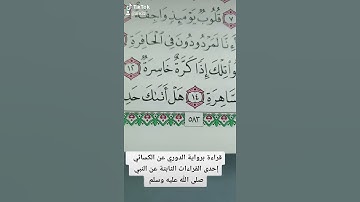 TikTok
٧ قُلُوبٌ يَوْمَئِذٍ وَاجِفَة
ءِنَّا لَمَرْدُودُونَ فِي الْحَافِرَةِ
واْ تِلْكَ إِذًا كَرَّةٌ خَاسِرَةٌ ١٢
سَّاهِرَةِ ١٤ هَلْ أَتَىٰكَ حَدِ
٥٨٣
قراءة برواية الدوري عن الكسائي
إحدى القراءات الثابتة عن النبي
صلى الله عليه وسلم